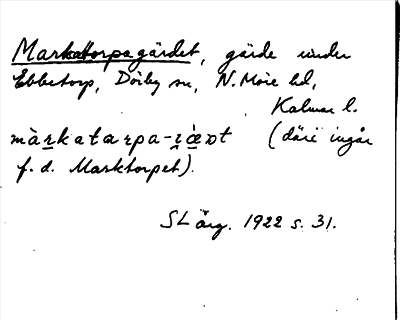 Markatorpagärdet, gärde under
Ebbetorp, Dörby sn, N. Möre hd,
Kalmar l.
(däri ingår
f. d. Marktorpet).
SL årg. 1922 s. 31.